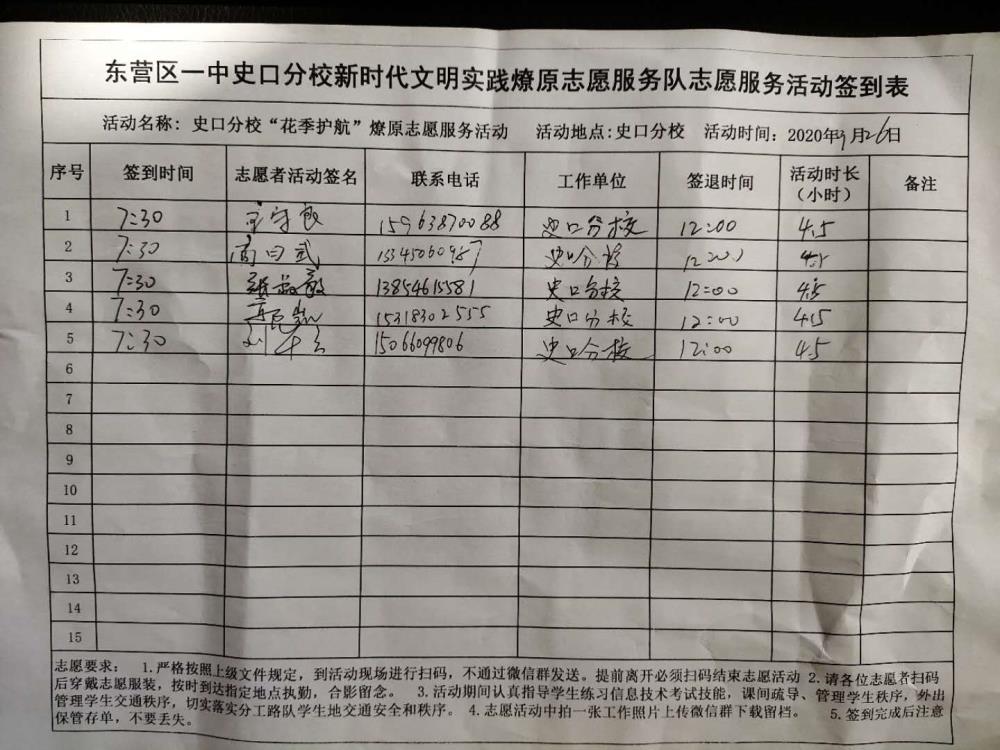 东营区一中史口分校新时代文明实践燎原志愿服务队志愿服务活动签到表
活动名称: 史口分校“花季护航”燎原志愿服务活动 活动地点:史口分校 活动时间: 2020年9月26日
序号 签到时间 志愿者活动签名 联系电话 工作单位 签退时间 活动时长(小时) 备注
1 7:30 15963870088 史口分校 12:00 4.5
2 7:30 高曰武 史口分校
3 7:30 13854615581 史口分校 12:00 4.5
4 7:30 15318302555 史口分校 12:00 4.5
5 7:30 15066099806 史口分校 12:00 4.5
6
7
8
9
10
11
12
13
14
15
志愿要求: 1.严格按照上级文件规定，到活动现场进行扫码，不通过微信群发送。提前离开必须扫码结束志愿活动 2.请各位志愿者扫码
后穿戴志愿服装，按时到达指定地点执勤，合影留念。 3.活动期间认真指导学生练习信息技术考试技能，课间疏导、管理学生秩序，外出
管理学生交通秩序，切实落实分工路队学生地交通安全和秩序。 4.志愿活动中拍一张工作照片上传微信群下载留档。 5.签到完成后注意
保管存单，不要丢失。